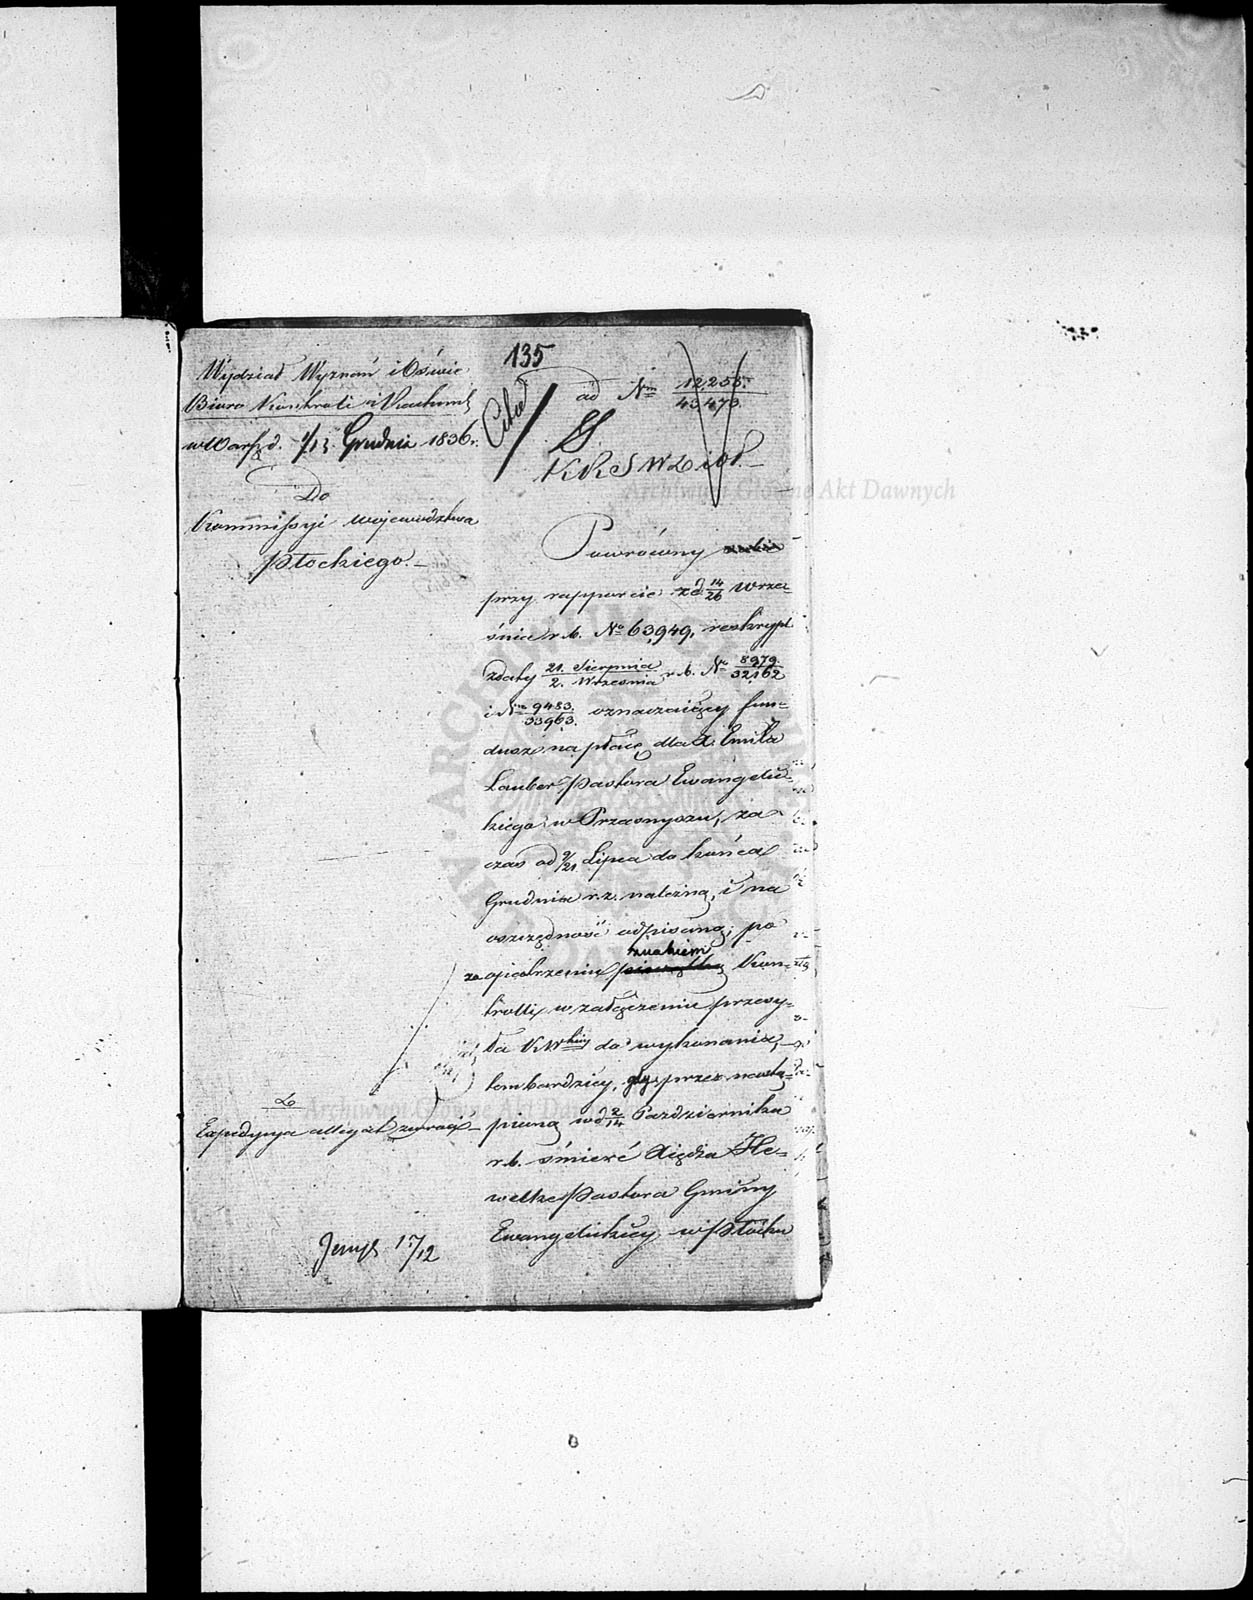 135
Wydział Wyznań i Oświec
Biuro Kontroli i Rachunk
w Warsz d. 1/13 Grudnia 1836 r.
Do
Kommissyi Województwa
Płockiego.
ad Nrm 12,258. / 43,473.
Cito
KRSWDiOP.
Powrócony
przy rapporcie z d. 14/26 Wrze-
śnia r.b. No 63,949, reskrypt
z daty 21. Sierpnia / 2. Września r.b. No 8979. / 32,162
i Nrm 9483. / 33963. oznaczaiący fun-
dusz na płacę dla X. Emila
Lauber, Pastora Ewangelic-
kiego w Przasnyszu, za
czas od 9/21 Lipca do końca
Grudnia r.z. należną, i na
oszczędność odpisaną; po
znakiem
zaopatrzeniu pieczątką Kon-
trolli, w załączeniu przesy-
ła K. Wkiey do wykonania,
tem bardziey, gdy przez nastą-
pioną w d. 2/14 Października
r.b. śmierć Xiędza He-
welke Pastora Gminy
Ewangelickiey w Płocku
Expedycya allegat zwróci
17/12
Archiwum Główne Akt Dawnych
Archiwum Główne Akt Dawnych